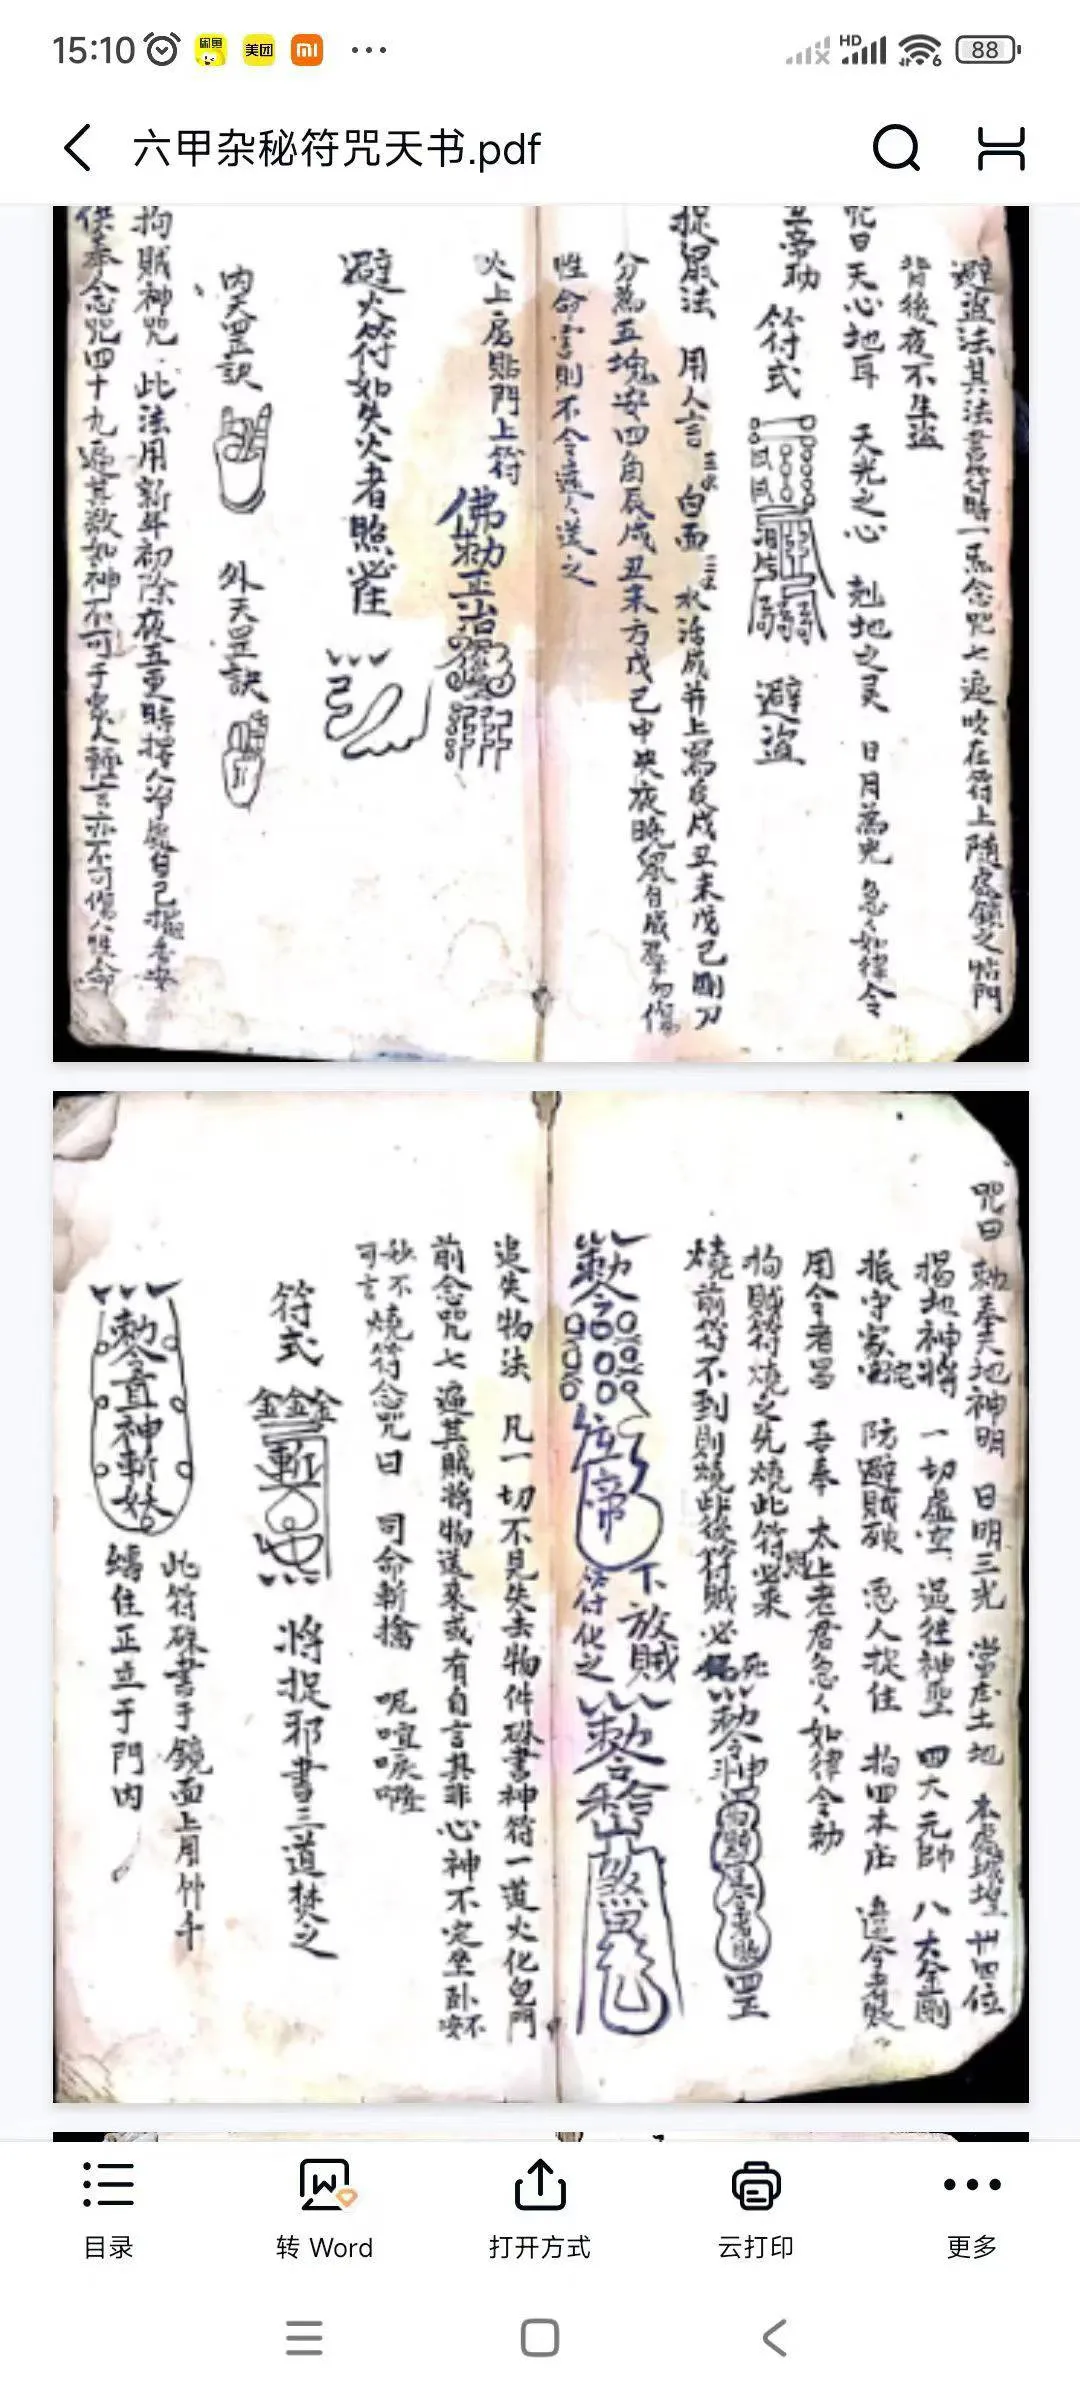 15:10
闲鱼
美团
HD
6
88
六甲杂秘符咒天书.pdf
避盗法其法書符時一炁念咒七遍吹在符上随處鎮之帖門
背後夜不生盗
咒曰天心地耳 天光之心 尅地之灵 日月為光 急急如律令
符式
避盗
捉鼠法 用人言 白面 水活成并上寫辰戌丑未戊己 刀
分為五塊安四角辰戌丑未方戊己中央夜晚鼠自成群勿傷
性命害則不令遠遠送之
火上房貼門上符
佛勅正治
避火符如失火者照
內天罡訣
外天罡訣
拘贼神咒 此法用新年初除夜五更時 自己
供奉念咒四十九遍其效如神不可 人輕言亦不可傷人性命
咒曰 勅奉天地神明 日明三光 當庄土地 本處城隍 廿四位
揭地神將 一切虚空 過往神聖 四大元帥 八大金剛
振守家宅 防避贼 恶人捉住 拘四本庄 違令者
用令者昌 吾奉 太上老君急急如律令勅
拘贼符燒之先燒此符 来
燒前符不到則燒此後符贼必死
勅令
罡
勅令
帝
下放贼
符化之
勅令
煞鬼
追失物法 凡一切不見失去物件硃書神符一道火化皂門
前念咒七遍其贼將物送来或有自言其非心神不定坐卧不安
妙不可言燒符念咒曰 司命斬擒
符式
金金金
斬
將捉邪書三道焚之
勅令 神斬妖
此符硃書于鏡面上用竹千
縛住正立于門內
目录
转 Word
打开方式
云打印
更多